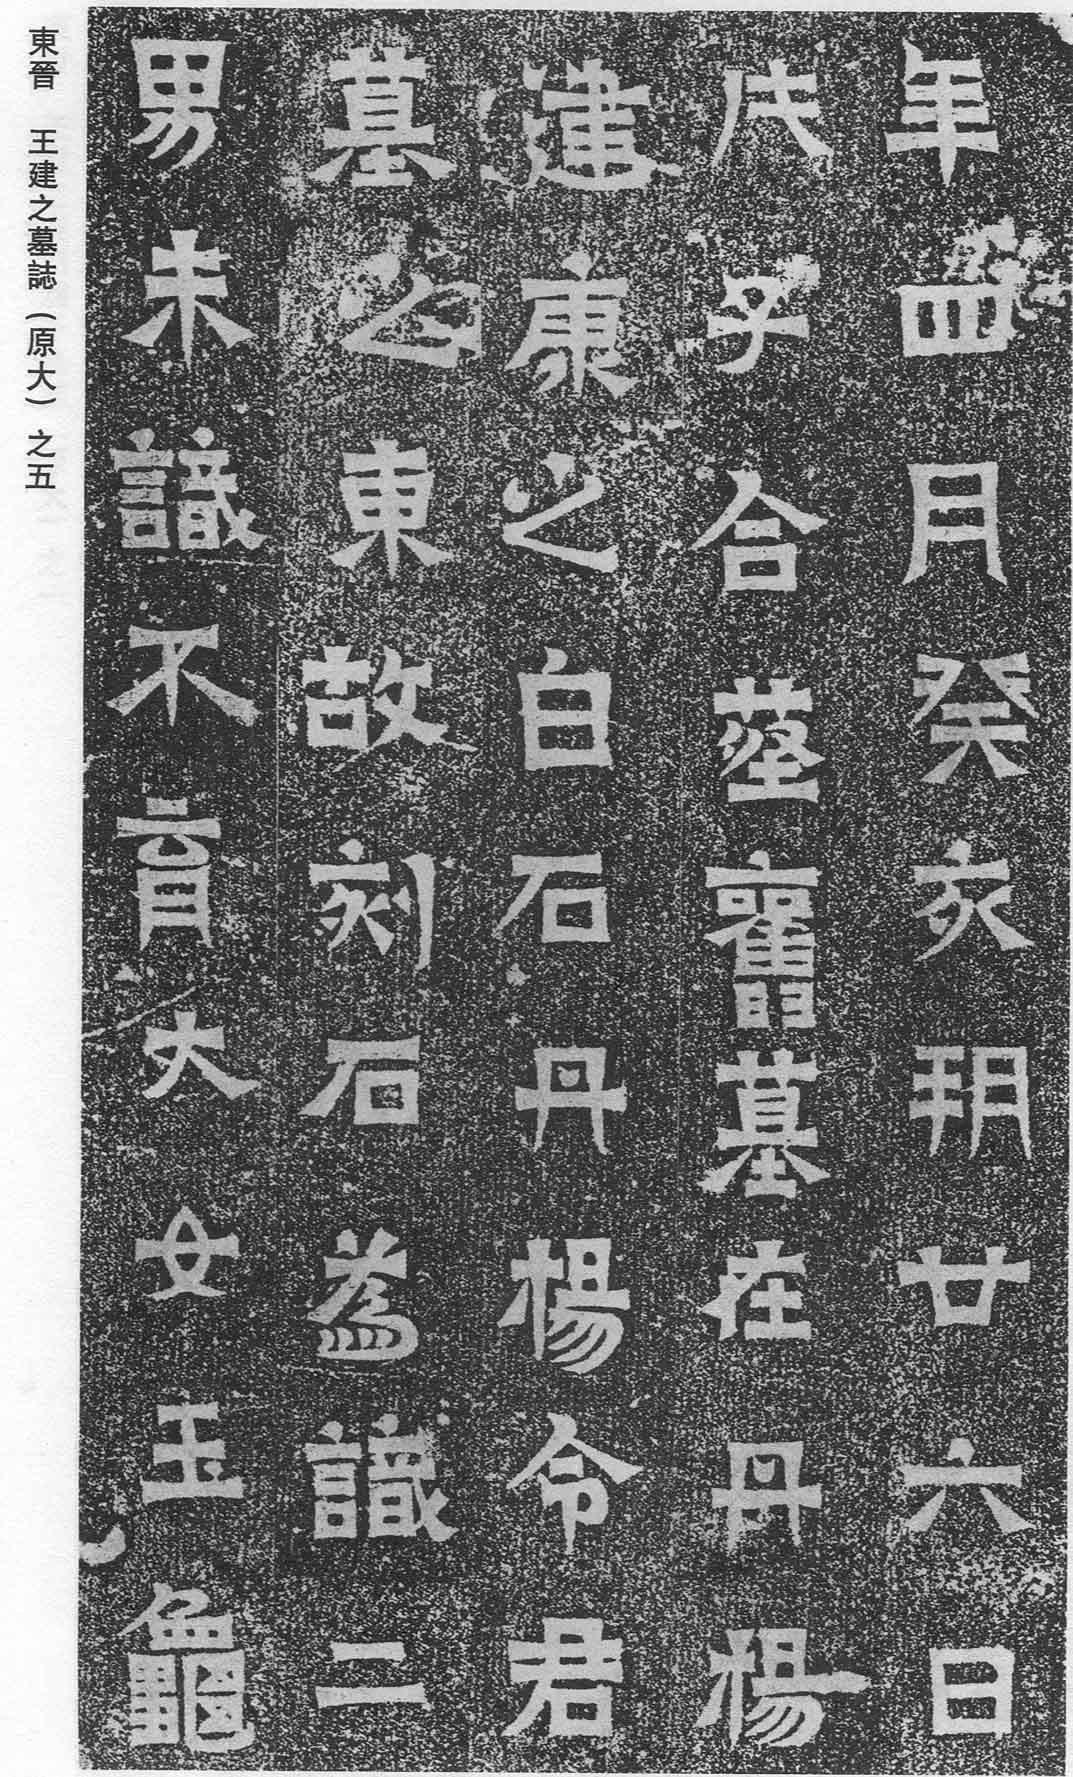 年四月癸亥朔廿六日
戊子合葬舊墓在丹楊
建康之白石丹楊令君
墓之東故刻石為識二
男未識不育大女玉龜
東晉 王建之墓誌(原大) 之五